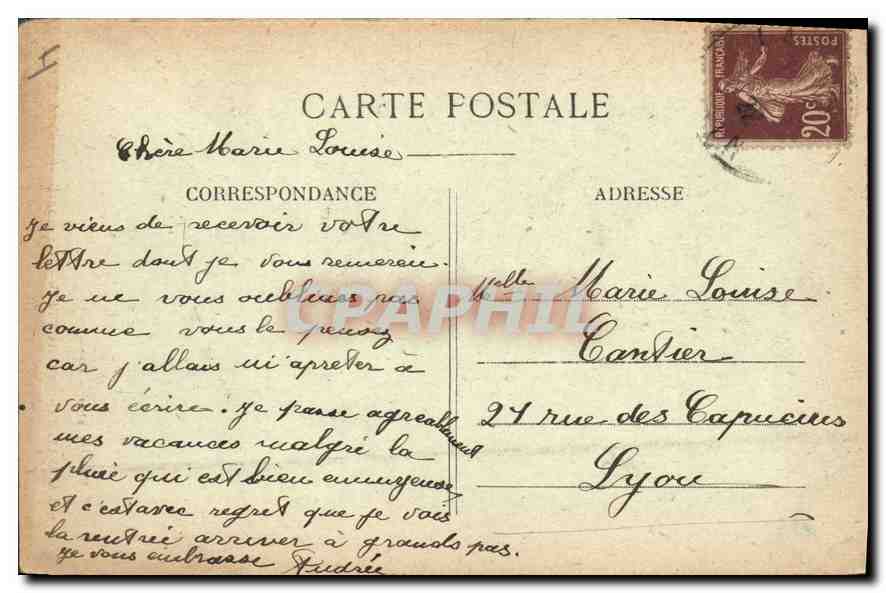 CARTE POSTALE
Chère Marie Louise
CORRESPONDANCE
Je viens de recevoir votre
lettre dont je vous remercie.
Je ne vous oubliais pas
comme vous le pensez
car j'allais m'apreter à
vous écrire. Je passe agréablement
mes vacances malgré la
pluie qui est bien ennuyeuse,
et c'est avec regret que je vois
la rentrée arriver à grands pas.
Je vous embrasse Andrée
ADRESSE
Melle Marie Louise
Cantier
27 rue des Capucins
Lyon
REPUBLIQUE FRANÇAISE
POSTES
20c
CPAPHIL